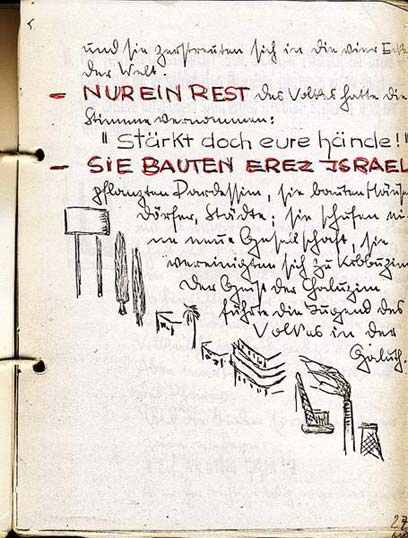 und sie zerstreuten sich in die vier
der Welt.
– NUR EIN REST des Volkes hatte die
Stimme vernommen:
"Stärkt doch eure Hände!"
– SIE BAUTEN EREZ ISRAEL
pflanzten Pardessim, sie bauten Häuse
Dörfer, Städte; sie schufen ei
ne neue Gesellschaft, sie
vereinigten sich zu Kibbuzim
Der Geist der Chaluzim
führte die Jugend des
Volkes in der
Galuth.
27